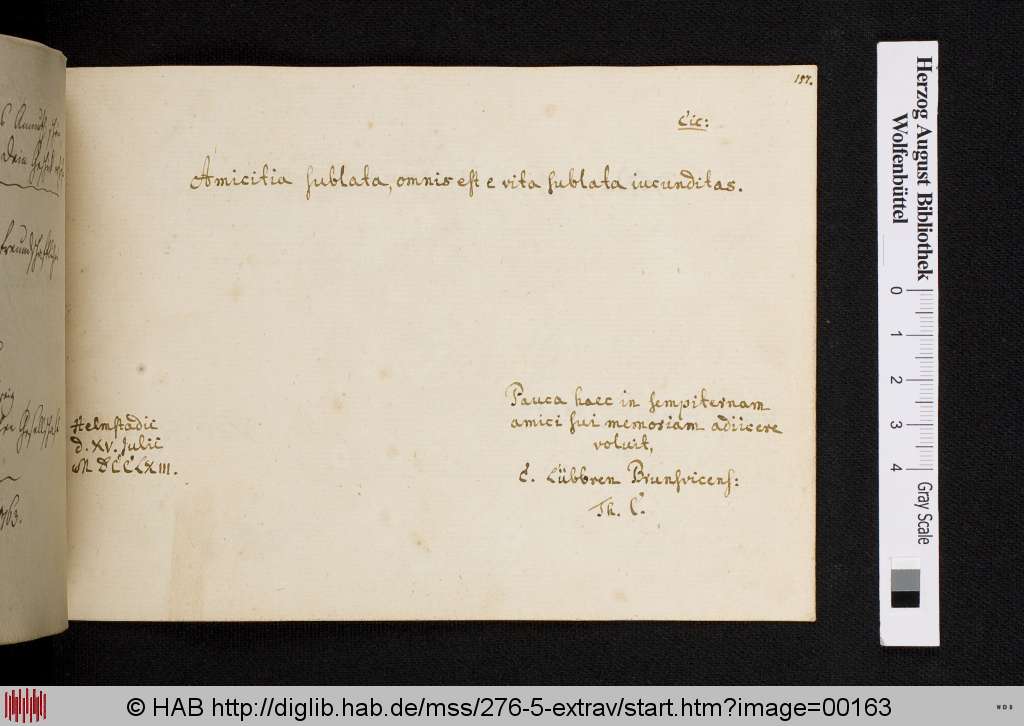 157.
Cic:
Amicitia sublata, omnis est e vita sublata iucunditas.
Pauca haec in sempiternam
amici sui memoriam adiicere
voluit,
C. Lübbren Brunsvicens:
Th. C.
Helmstadii
d. XV. Julii
MDCCLXIII.
Herzog August Bibliothek
Wolfenbüttel
0 1 2 3 4
Gray Scale
© HAB http://diglib.hab.de/mss/276-5-extrav/start.htm?image=00163
WDB